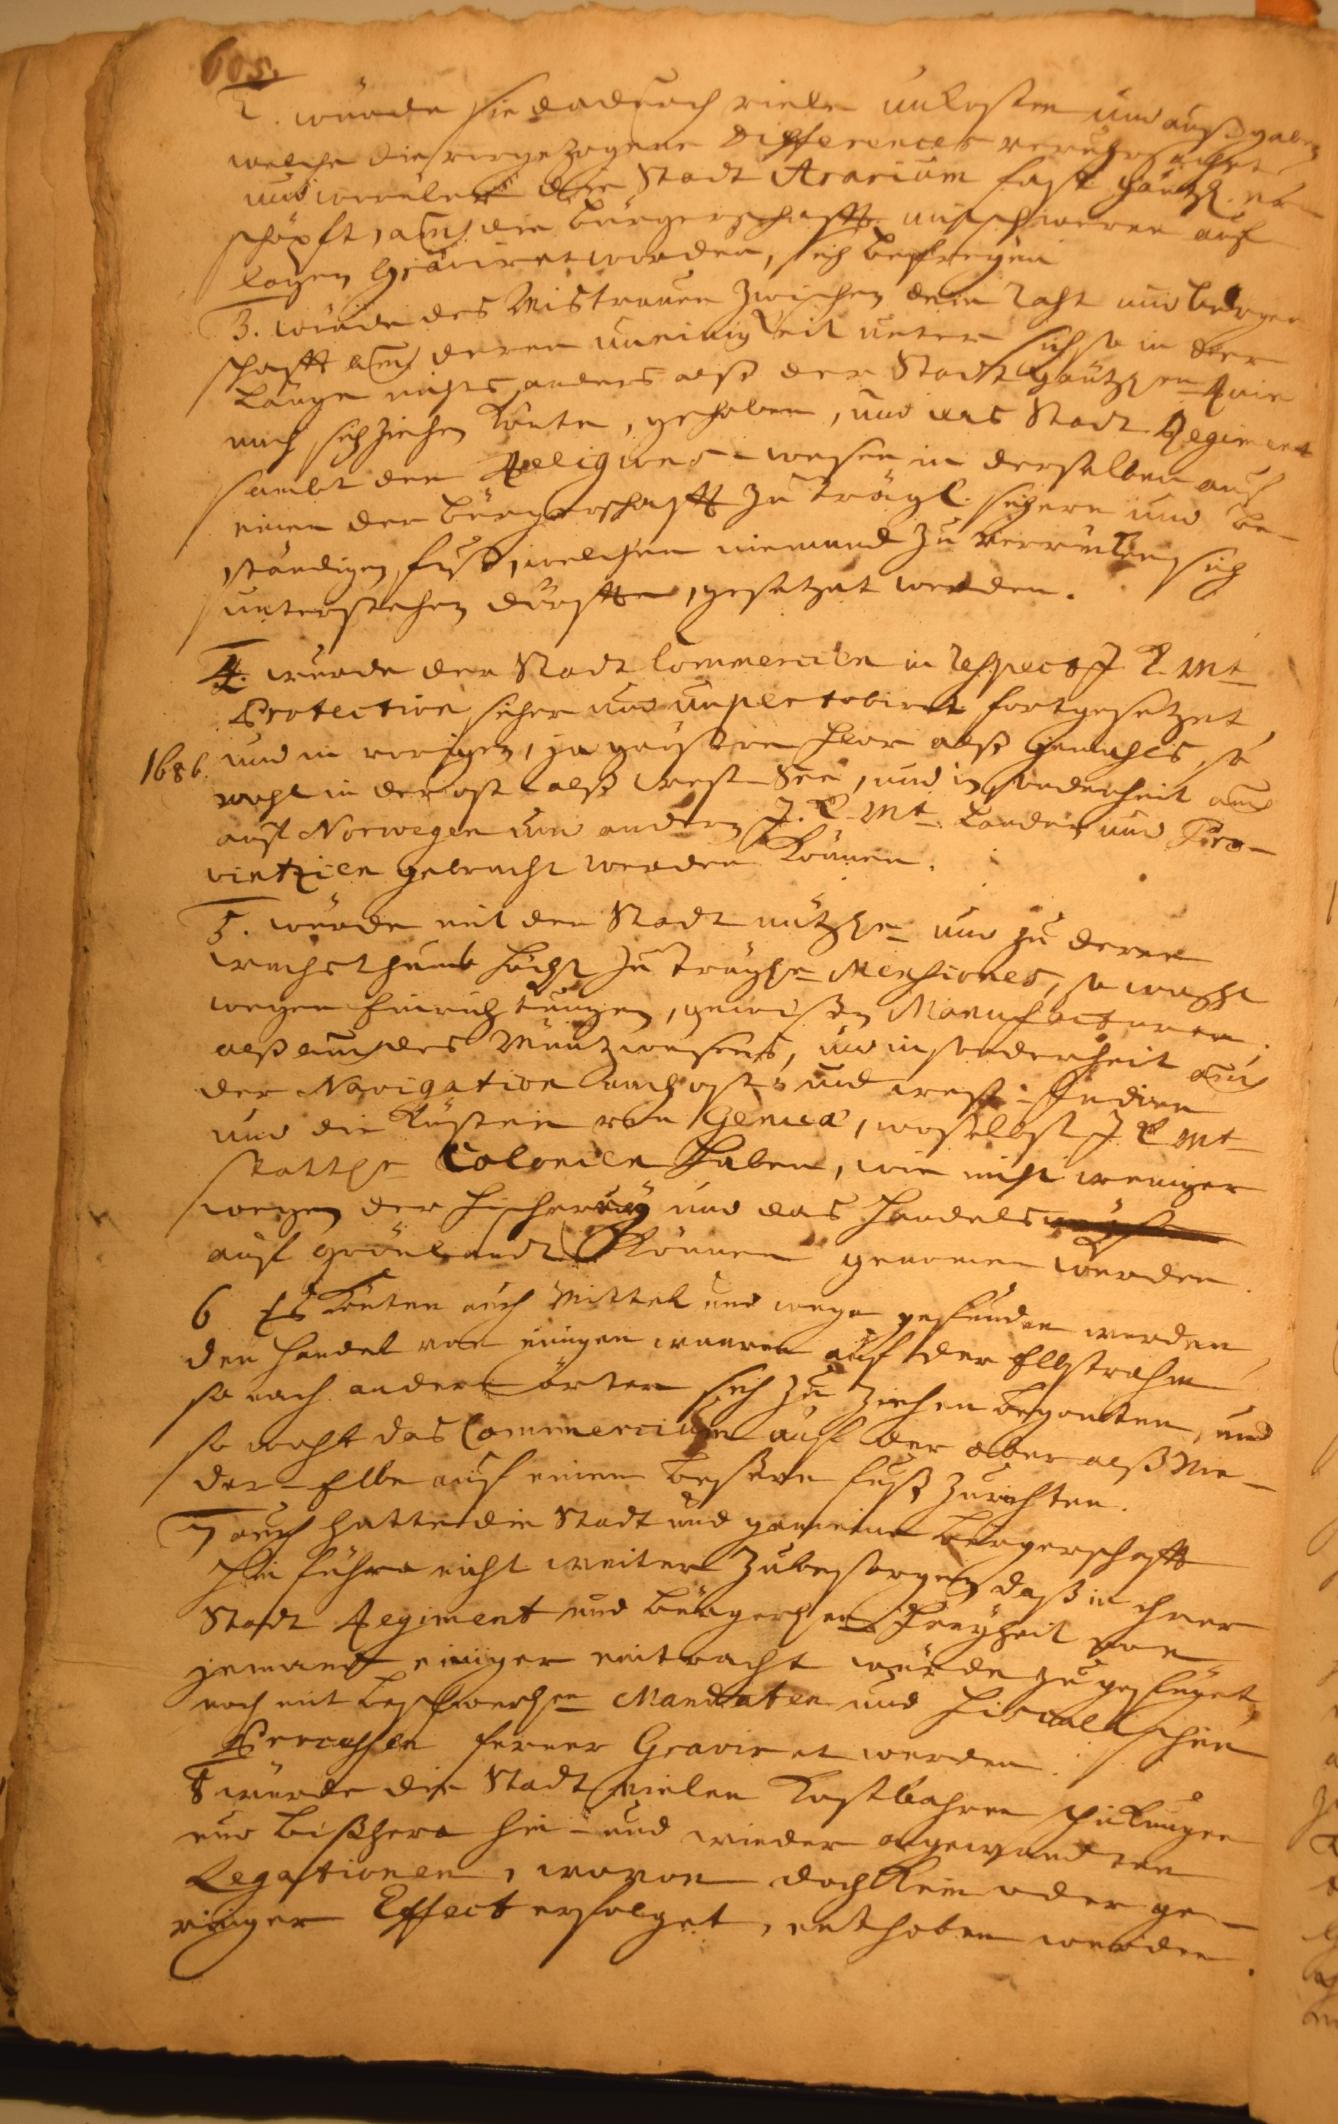 605.
2. würde sie dadurch vielen unkosten und außgaben
welche die vorgezogene Differences verursachet
und worüber die Stadt Ararium fast gäntzl. er-
schöpft, auch die Bürgerschafft mit schweren auf
lagen graviret worden, sich befreyen
3. würde das Mistrauen zwischen dem Raht und Bürger
schafft auch deren uneinigkeit unter sich so in der
länge nichts anders alß der Stadt gäntzlichen Ruin
nach sich ziehen könte, gehoben, und das Stadt Regiment
sambt den Religions-wesen in derselben auf
einen der Bürgerschafft zu trägl. sichern und be-
ständigen fuß, welchen niemand zu verrücken sich
unterstehen dürffte, gesetzet werden.
4. würde der Stadt Commercien in Respect J K Mt
Protection sicher und unpertobiret fortgesetzet
1686. und in vorigen, ja grössern flor alß jemahls, so
wohl in der ost alß West-See, und insonderheit auch
auf Norwegen und andern J. K Mt Lander und Pro-
vintzien gebracht werden können.
5. würde mit der Stadt nützlichen und zu deren
wachsthumb höchst zu trägliche Mensiones, so wohl
wegen Einrichtungen, gewissen Manufacturen
alß auch des Müntzwesens, und insonderheit auch
der Navigation nach ost- und west-Indien
und die Küsten von Genua, woselbst J K Mt
stattliche Colonien haben, wie nicht weniger
wegen der Fischerey und das Handels
auf Grönlandt können genomen werden
6 Es könten auch Mittel und wege gefunden werden
den Handel von einigen waaren auf der Elbstrohm
so nach andern örtern sich zu ziehen begonten, und
so wohl das Commercium auf der ober alß Nie-
der-Elbe auf einem bessern fuß zurichten.
7 auch hatte die Stadt und gemeine Bürgerschafft
hin führo nicht weiter zubesorgen daß in ihrer
Stadt Regiment und Bürgerlichen Freyheit von
jemand einiger eintracht würde zu gefüget,
noch mit beschwerlichen Mandaten und Fiscalischen
Processen ferner Graviret werden.
8 würde die Stadt vielen kostbahren schikungen
und bißhero hin- und wieder angewandten
Legationen, wovon doch kein oder ge-
ringer Effect erfolget, enthoben werden.